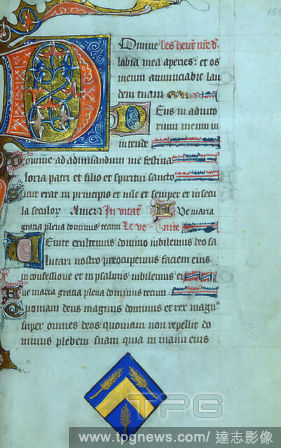 Domine les heures nre d
labia mea aperies: et os
meum annunciabit lau
dem tuam
Deus in adiuto
rium meum in
intende
Domine ad adiuvandum me festina
Gloria patri et filio et spiritui sancto
Sicut erat in principio et nūc et semper et in secu
la seculorz Amen Invitat Ave maria
gratia plena dominus tecum
Venite exultemus domino iubilemus deo sa
lutari nostro preocupemus faciem eius
in confessione et in psalmis iubilemus ei
Ave maria gratia plena dominus tecum
Quoniam deus magnus dominus et rex magn
super omnes deos quoniam non repellit do
minus plebem suam quia in manu eius
TPG
www.tpgnews.com/達志影像